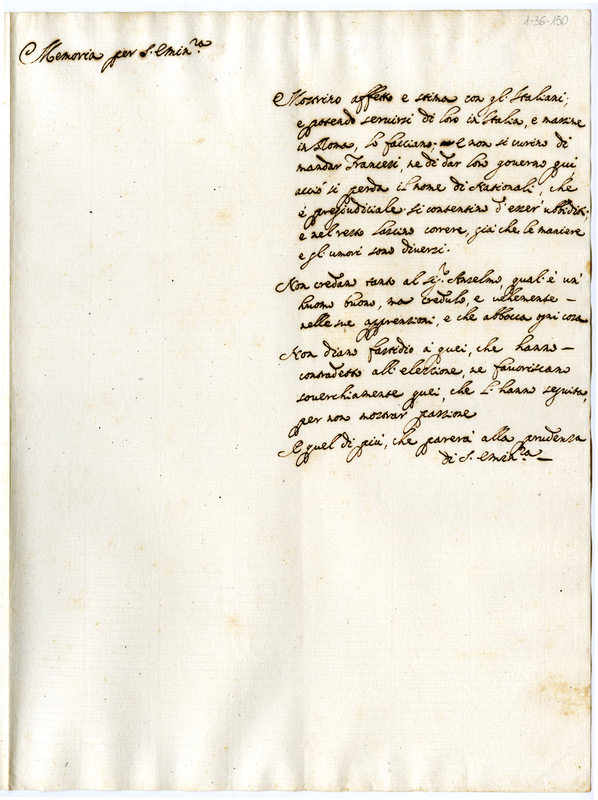 1-36-150
Memoria per S. Emin.ra
Mostrino affetto e stima con gl'Italiani;
e potendo servirsi di loro in Italia, e massime
in Roma, lo facciano; e non si curino di
mandar Francesi, ne di dar loro governo qui
acciò si perda il nome di Nationali, che
è prejudiciale. Si contentino d'esser' ubbiditi,
e nel resto lascino correre, già che le maniere
e gl'umori sono diversi.
Non credan tanto al sig.r Anselmo, qual'è un'
huomo buono, ma credulo, e vehemente
nelle sue apprensioni, e che abbocca ogni cosa
Non diano fastidio à quei, che hanno
contradetto all'elezzione, ne favoriscano
soverchiamente quei, che l'hanno seguita,
per non mostrar passione
E quel di più, che parerà alla prudenza
di S. Emin.ra